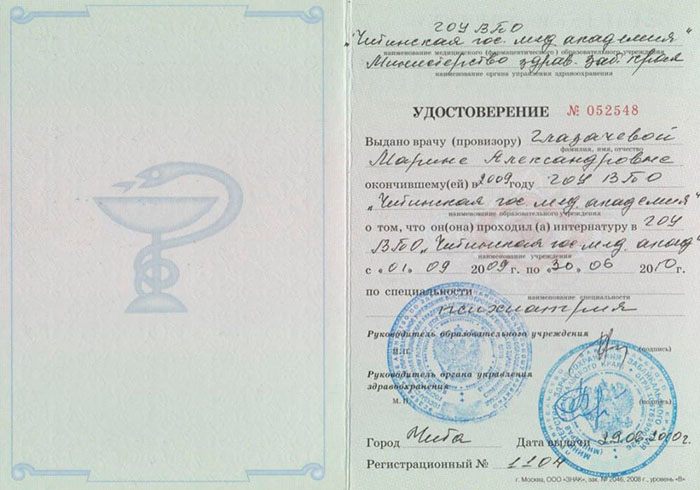 ГОУ ВПО
"Читинская гос. мед академия"
наименование медицинского (фармацевтического) образовательного учреждения
Министерство здрав. Заб. края
наименование органа управления здравоохранения
УДОСТОВЕРЕНИЕ № 052548
Выдано врачу (провизору) Глазачевой
фамилия, имя, отчество
Марине Александровне
окончившему(ей) в 2009 году ГОУ ВПО
"Читинская гос. мед. академия"
наименование образовательного учреждения
о том, что он(она) проходил(а) интернатуру в ГОУ
ВПО "Читинская гос. мед. акад"
наименование учреждения
с «01» 09 2009 г. по «30» 06 2010 г.
по специальности
наименование специальности
психиатрия
Руководитель образовательного учреждения
М.П. (подпись)
Руководитель органа управления
здравоохранения
М. П. (подпись)
Город Чита Дата выдачи 29.06.2010г.
Регистрационный № 1104
г. Москва, ООО «ЗНАК», зак. № 2046, 2008 г., уровень «В»